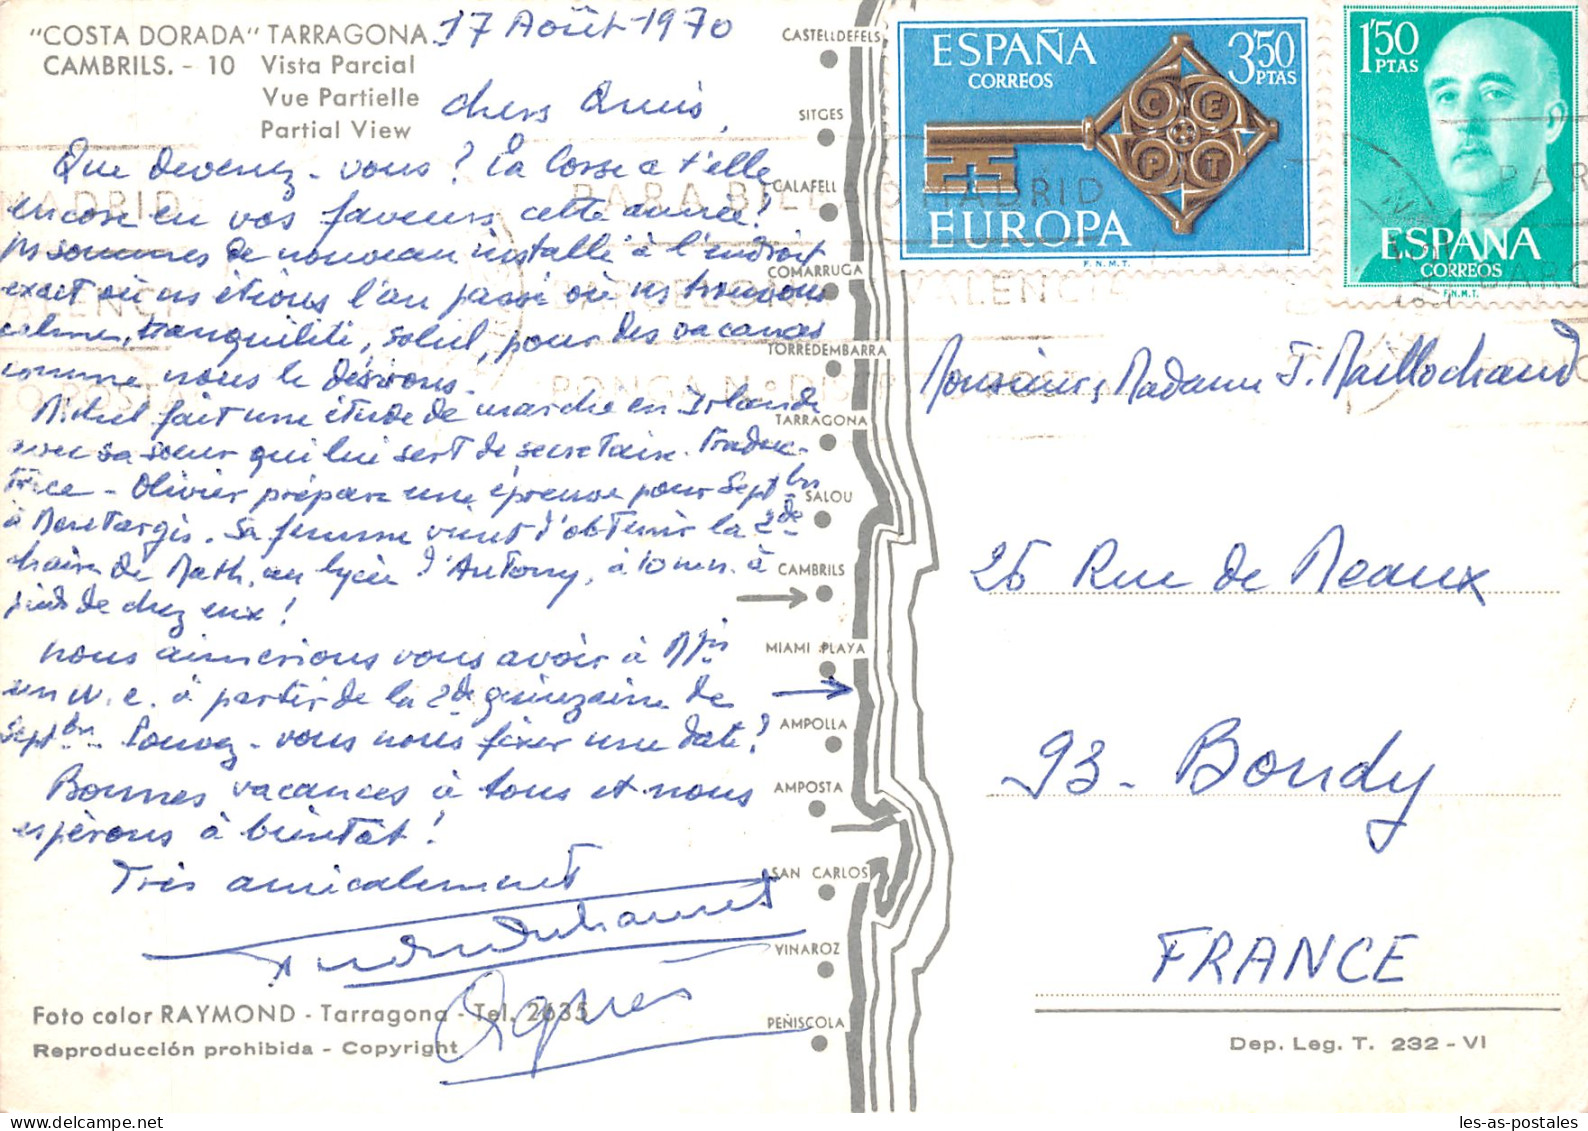 "COSTA DORADA" TARRAGONA
CAMBRILS. - 10 Vista Parcial
Vue Partielle
Partial View
17 Août 1970
chers Amis,
Que devenez-vous? La Corse a t'elle
encore eu vos faveurs cette année?
ns sommes de nouveau installé à l'endroit
exact où ns étions l'an passé où ns trouvons
calme, tranquilité, soleil, pour des vacances
comme nous le désirons.
Michel fait une étude de marché en Irlande
avec sa soeur qui lui sert de secrétaire. Traduc-
trice - Olivier prépare une épreuve pour Septbre
à Montargis. Sa femme vient d'obtenir la 2de
chaire de Math. au lycée d'Antony, à 10 mn. à
pieds de chez eux!
Nous aimerions vous avoir à
un W.E. à partir de la 2de quinzaine de
Septbre. Pouvez-vous nous fixer une date?
Bonnes vacances à tous et nous
espérons à bientôt!
Très amicalement
Agnès
Foto color RAYMOND - Tarragona - Tel. 2635
Reproducción prohibida - Copyright
CASTELLDEFELS
SITGES
CALAFELL
COMARRUGA
TORREDEMBARRA
TARRAGONA
SALOU
CAMBRILS
MIAMI PLAYA
AMPOLLA
AMPOSTA
SAN CARLOS
VINAROZ
PEÑISCOLA
ESPAÑA
CORREOS
3'50
PTAS
CEPT
EUROPA
F.N.M.T.
1'50
PTAS
ESPAÑA
CORREOS
F.N.M.T.
MADRID
PARA BILBAO MADRID
VALENCIA
PONGA N.º D.
Monsieur, Madame J. Maillochaud
25 Rue de Meaux
93 - Bondy
FRANCE
Dep. Leg. T. 232 - VI
les-as-postales